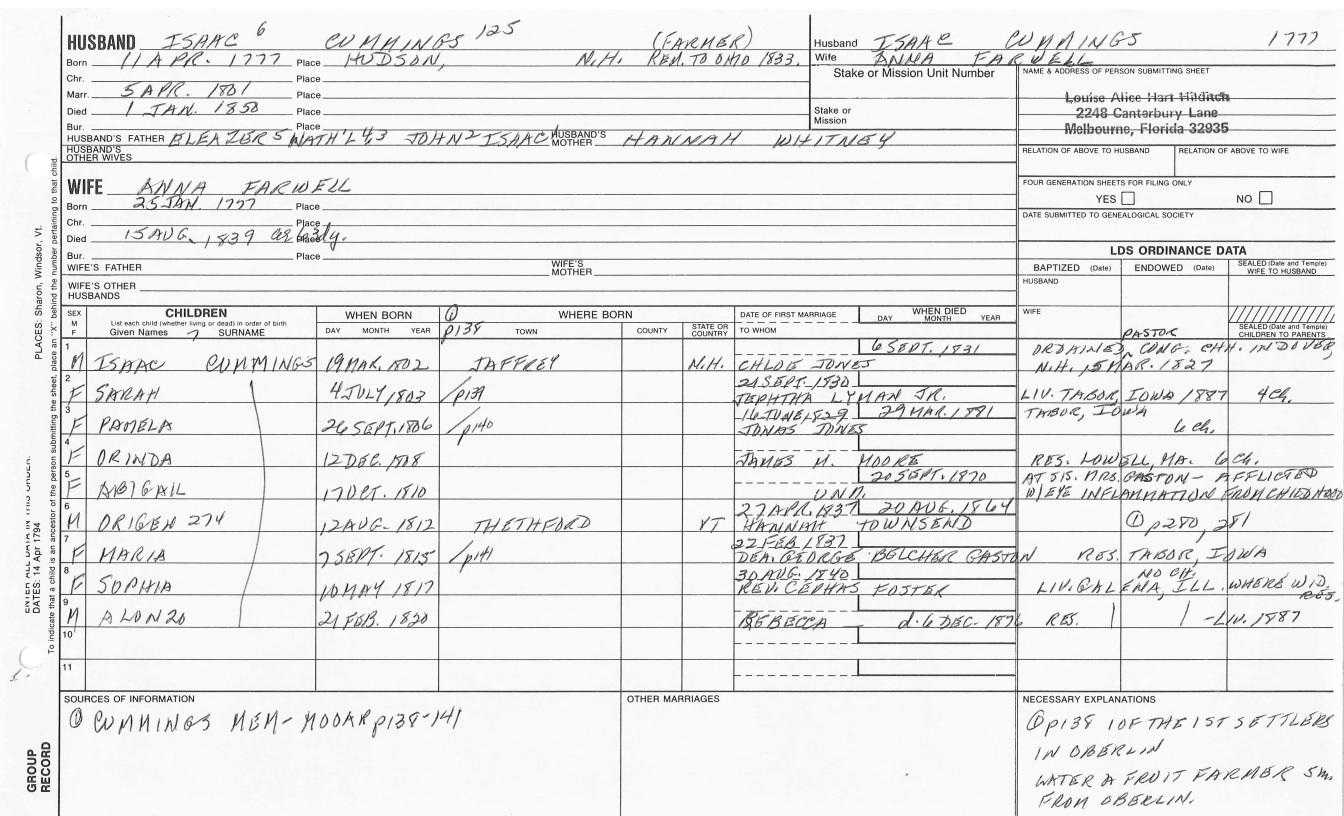 HUSBAND ISAAC 6 CUMMINGS 125 (FARMER)
Born 11 APR. 1777 Place HUDSON, N.H. REM. TO OHIO 1833.
Chr. Place
Marr. 5 APR. 1801 Place
Died 1 JAN. 1850 Place
Bur. Place
HUSBAND'S FATHER ELEAZER 5 NATH'L 4,3 JOHN 2 ISAAC 1 HUSBAND'S MOTHER HANNAH WHITNEY
HUSBAND'S OTHER WIVES
WIFE ANNA FARWELL
Born 25 JAN. 1777 Place
Chr. Place
Died 15 AUG. 1839 Place
Bur. Place
WIFE'S FATHER WIFE'S MOTHER
WIFE'S OTHER HUSBANDS
Husband ISAAC CUMMINGS 1777
Wife ANNA FARWELL
Stake or Mission Unit Number
Stake or Mission
NAME & ADDRESS OF PERSON SUBMITTING SHEET
Louise Alice Hart Hilditch
2248 Canterbury Lane
Melbourne, Florida 32935
RELATION OF ABOVE TO HUSBAND RELATION OF ABOVE TO WIFE
FOUR GENERATION SHEETS FOR FILING ONLY
YES NO
DATE SUBMITTED TO GENEALOGICAL SOCIETY
LDS ORDINANCE DATA
BAPTIZED (Date) ENDOWED (Date) SEALED (Date and Temple) WIFE TO HUSBAND
HUSBAND
WIFE
SEALED (Date and Temple) CHILDREN TO PARENTS
SEX M F
CHILDREN
List each child (whether living or dead) in order of birth
Given Names 7 SURNAME
WHEN BORN
DAY MONTH YEAR
① p138
WHERE BORN
TOWN COUNTY STATE OR COUNTRY
DATE OF FIRST MARRIAGE
TO WHOM
WHEN DIED
DAY MONTH YEAR
1 M ISAAC CUMMINGS 19 MAR. 1802 JAFFREY N.H. CHLOE JONES 6 SEPT. 1831 ORDAINED PASTOR CONG. CHH. IN DOVER, N.H. 15 MAR. 1827
2 F SARAH 4 JULY 1803 /p139 21 SEPT. 1830 JEPHTHA LYMAN JR. LIV. TABOR, IOWA 1887 4 Ch.
3 F PAMELA 26 SEPT. 1806 /p140 16 JUNE, 1829 29 MAR. 1881 JONAS JONES TABOR, IOWA 6 ch.
4 F ORINDA 12 DEC. 1808 JAMES M. MOORE RES. LOWELL, MA. 6 Ch.
5 F ABIGAIL 17 OCT. 1810 UNM. 20 SEPT. 1870 AT SIS. MRS. GASTON - AFFLICTED W/EYE INFLAMMATION FROM CHILDHOOD
6 M ORIGEN 274 12 AUG. 1812 THETHFORD VT 27 APR. 1837 20 AUG. 1864 HANNAH TOWNSEND ① p280, 281
7 F MARIA 7 SEPT. 1815 /p141 22 FEB 1837 DEA. GEORGE BELCHER GASTON RES. TABOR, IOWA
8 F SOPHIA 10 MAY 1817 30 AUG. 1840 REV. CEPHAS FOSTER NO CH. LIV. GALENA, ILL. WHERE WID. RES.
9 M ALONZO 21 FEB. 1820 REBECCA d. 6 DEC. 1876 RES. - LIV. 1887
10
11
SOURCES OF INFORMATION
① CUMMINGS MEM - MOOAR p138-141
OTHER MARRIAGES
NECESSARY EXPLANATIONS
① p138 1 OF THE 1ST SETTLERS
IN OBERLIN
WATER A FRUIT FARMER 5m.
FROM OBERLIN.
PLACES: Sharon, Windsor, Vt.
DATES: 14 Apr 1794
To indicate that a child is an ancestor of the person submitting the sheet, place an "X" behind the number pertaining to that child.
GROUP RECORD